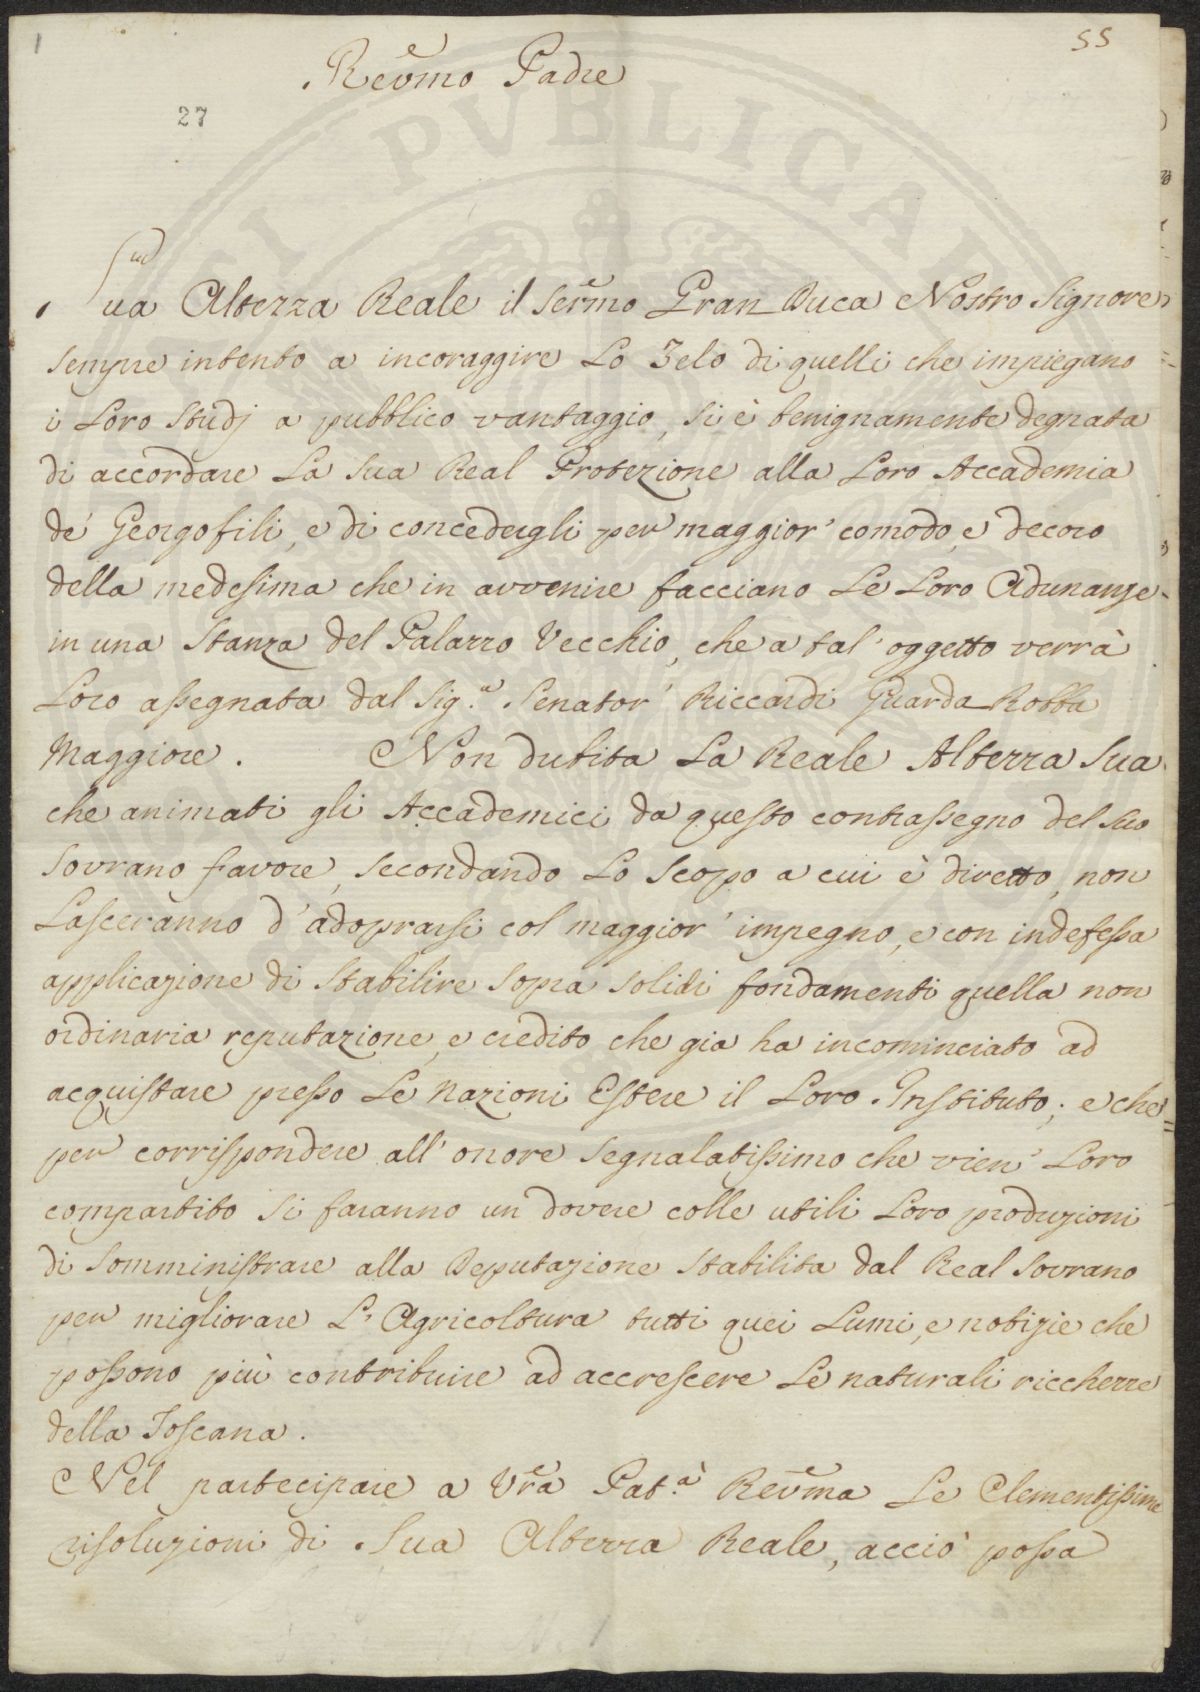 1
55
Reṽmo Padre
27
Sua Altezza Reale il Serm̃o Gran Duca Nostro Signore
sempre intento a incoraggire Lo Zelo di quelli che impiegano
i Loro Studj a pubblico vantaggio, si è benignamente degnata
di accordare La Sua Real Protezione alla Loro Accademia
de' Georgofili, e di concedergli per maggior' comodo, e decoro
della medesima che in avvenire facciano Le Loro Adunanze
in una Stanza del Palazzo Vecchio, che a tal' oggetto verrà
Loro assegnata dal Sig.r Senator' Riccardi Guarda Robba
Maggiore. Non dubita La Reale Altezza Sua
che animati gli Accademici da questo contrassegno del Suo
Sovrano favore, secondando Lo scopo a cui è diretto, non
Lasceranno d'adoprarsi col maggior' impegno, e con indefessa
applicazione di Stabilire sopra solidi fondamenti quella non
ordinaria reputazione, e credito che gia ha incominciato ad
acquistare presso Le Nazioni Estere il Loro Instituto; e che
per corrispondere all'onore segnalatissimo che vien' Loro
compartito si faranno un dovere colle utili Loro produzioni
di Somministrare alla Deputazione Stabilita dal Real Sovrano
per migliorare L'Agricoltura tutti quei Lumi, e notizie che
possono più contribuire ad accrescere Le naturali ricchezze
della Toscana.
Nel partecipare a Vr̃a Pat.à Reṽma Le Clementissime
risoluzioni di Sua Altezza Reale, acciò possa